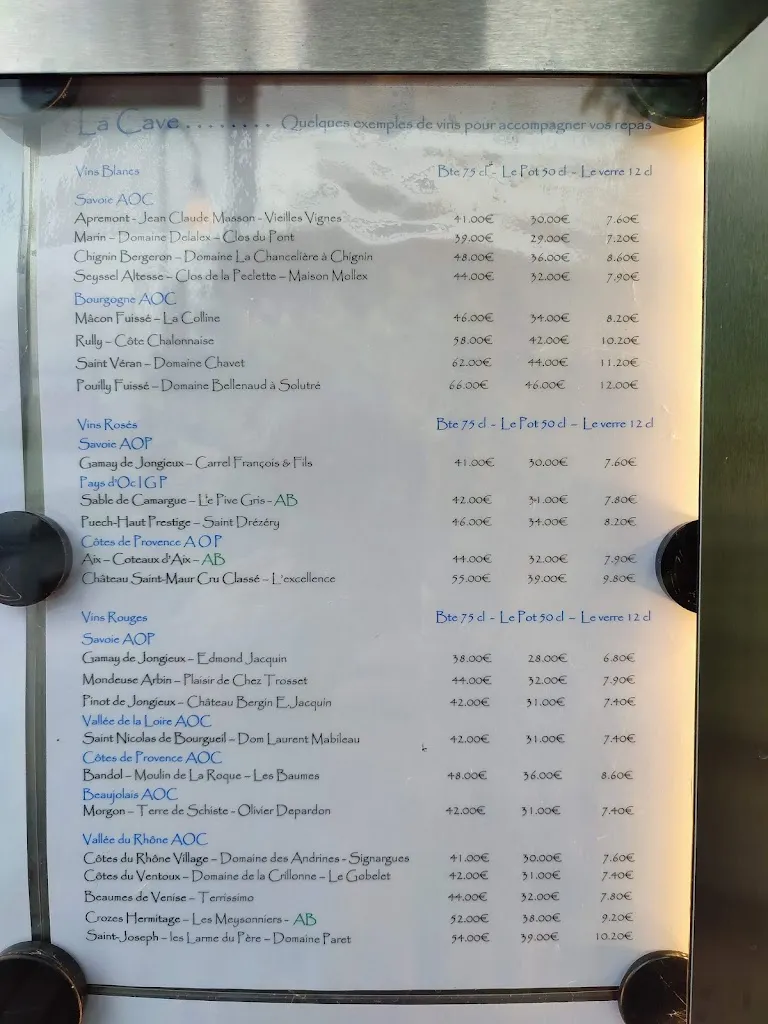 La Cave ........ Quelques exemples de vins pour accompagner vos repas
Vins Blancs Bte 75 cl - Le Pot 50 cl - Le verre 12 cl
Savoie AOC
Apremont - Jean Claude Masson - Vieilles Vignes 41.00€ 30.00€ 7.60€
Marin – Domaine Delalex – Clos du Pont 39.00€ 29.00€ 7.20€
Chignin Bergeron – Domaine La Chancelière à Chignin 48.00€ 36.00€ 8.60€
Seyssel Altesse – Clos de la Peclette – Maison Mollex 44.00€ 32.00€ 7.90€
Bourgogne AOC
Mâcon Fuissé – La Colline 46.00€ 34.00€ 8.20€
Rully – Côte Chalonnaise 58.00€ 42.00€ 10.20€
Saint Véran – Domaine Chavet 62.00€ 44.00€ 11.20€
Pouilly Fuissé – Domaine Bellenaud à Solutré 66.00€ 46.00€ 12.00€
Vins Rosés Bte 75 cl - Le Pot 50 cl – Le verre 12 cl
Savoie AOP
Gamay de Jongieux – Carrel François & Fils 41.00€ 30.00€ 7.60€
Pays d'Oc I G P
Sable de Camargue – Le Pive Gris - AB 42.00€ 31.00€ 7.80€
Puech-Haut Prestige – Saint Drézéry 46.00€ 34.00€ 8.20€
Côtes de Provence A O P
Aix – Coteaux d'Aix – AB 44.00€ 32.00€ 7.90€
Château Saint-Maur Cru Classé – L'excellence 55.00€ 39.00€ 9.80€
Vins Rouges Bte 75 cl - Le Pot 50 cl – Le verre 12 cl
Savoie AOP
Gamay de Jongieux – Edmond Jacquin 38.00€ 28.00€ 6.80€
Mondeuse Arbin – Plaisir de Chez Trosset 44.00€ 32.00€ 7.90€
Pinot de Jongieux – Château Bergin E.Jacquin 42.00€ 31.00€ 7.40€
Vallée de la Loire AOC
Saint Nicolas de Bourgueil – Dom Laurent Mabileau 42.00€ 31.00€ 7.40€
Côtes de Provence AOC
Bandol – Moulin de La Roque – Les Baumes 48.00€ 36.00€ 8.60€
Beaujolais AOC
Morgon – Terre de Schiste - Olivier Depardon 42.00€ 31.00€ 7.40€
Vallée du Rhône AOC
Côtes du Rhône Village – Domaine des Andrines - Signargues 41.00€ 30.00€ 7.60€
Côtes du Ventoux – Domaine de la Crillonne – Le Gobelet 42.00€ 31.00€ 7.40€
Beaumes de Venise – Terrissimo 44.00€ 32.00€ 7.80€
Crozes Hermitage – Les Meysonniers - AB 52.00€ 38.00€ 9.20€
Saint-Joseph – les Larme du Père – Domaine Paret 54.00€ 39.00€ 10.20€